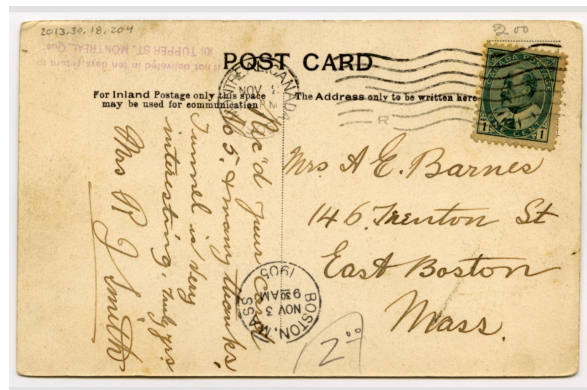 2013.30.18.204
If not delivered in ten days return to
101 TUPPER ST. MONTREAL, Que.
POST CARD
2.00
For Inland Postage only this space
may be used for communication
The Address only to be written here
MONTREAL, CANADA
NOV
CANADA POSTAGE
1 ONE CENT 1
R
Rec'd your Card
No 5, & many thanks,
Tunnel is very
interesting. Truly yrs
Mrs R J Smith
Mrs A E. Barnes
146. Trenton St
East Boston
Mass.
BOSTON, MASS.
NOV 3
930 AM
1905
2.00